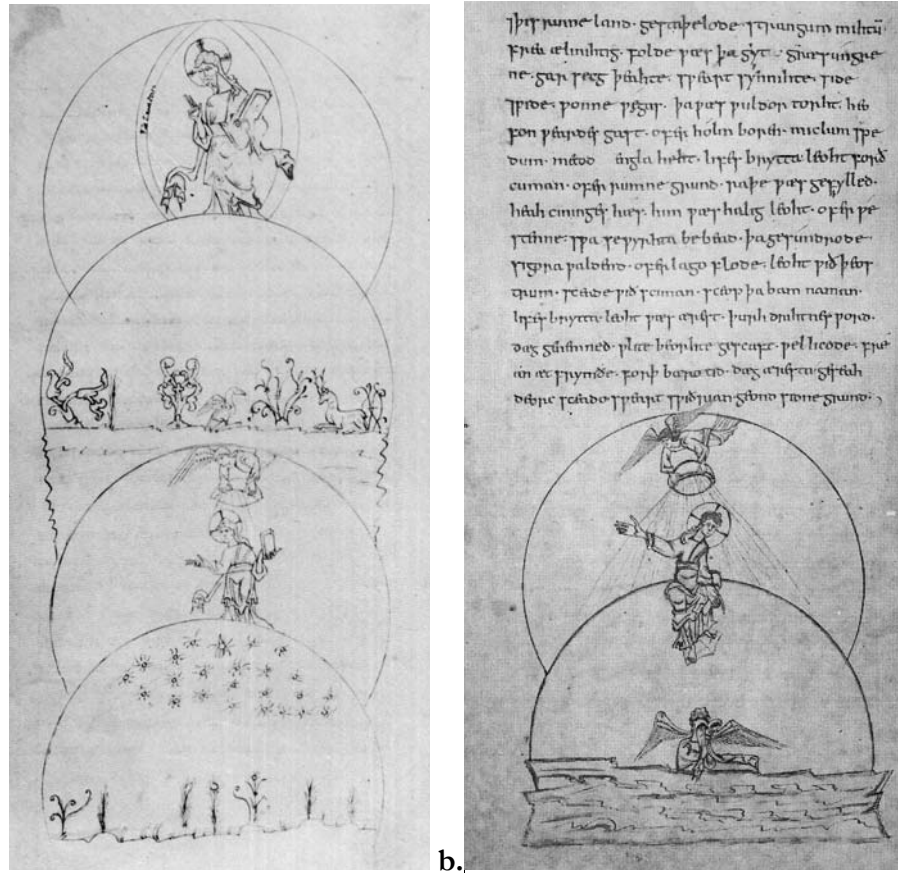 ⁊þis rume land · gestaþelode · strangum mihtū
frea ælmihtig · folde ƿæs þa gyt · græs ungre
ne · gar secg þeahte · sƿeart synnihte · side
⁊ ƿide · ƿonne ƿægas · þa ƿæs ƿuldor torht · heo
fon ƿeardes gast · ofer holm boren · miclum spe
dum · metod engla heht · lifes brytta leoht forð
cuman · ofer rumne grund · raþe ƿæs gefylled ·
heah cininges hæs · him ƿæs halig leoht · ofer ƿe
stenne · sƿa se ƿyrhta bebead · þa gesundrode
sigora ƿaldend · ofer lago flode · leoht ƿið þeos
trum · sceade ƿið sciman · sceop þa bam naman ·
lifes brytta leoht ƿæs ærest · þurh drihtnes ƿord ·
dæg genemned · ƿlite beorhte gesceaft · ƿel licode · fre
an æt frymðe · forþ bæro tid · dæg æresta geseah
deorc sceado sƿeart sƿiðrian geond sidne grund ·
b.